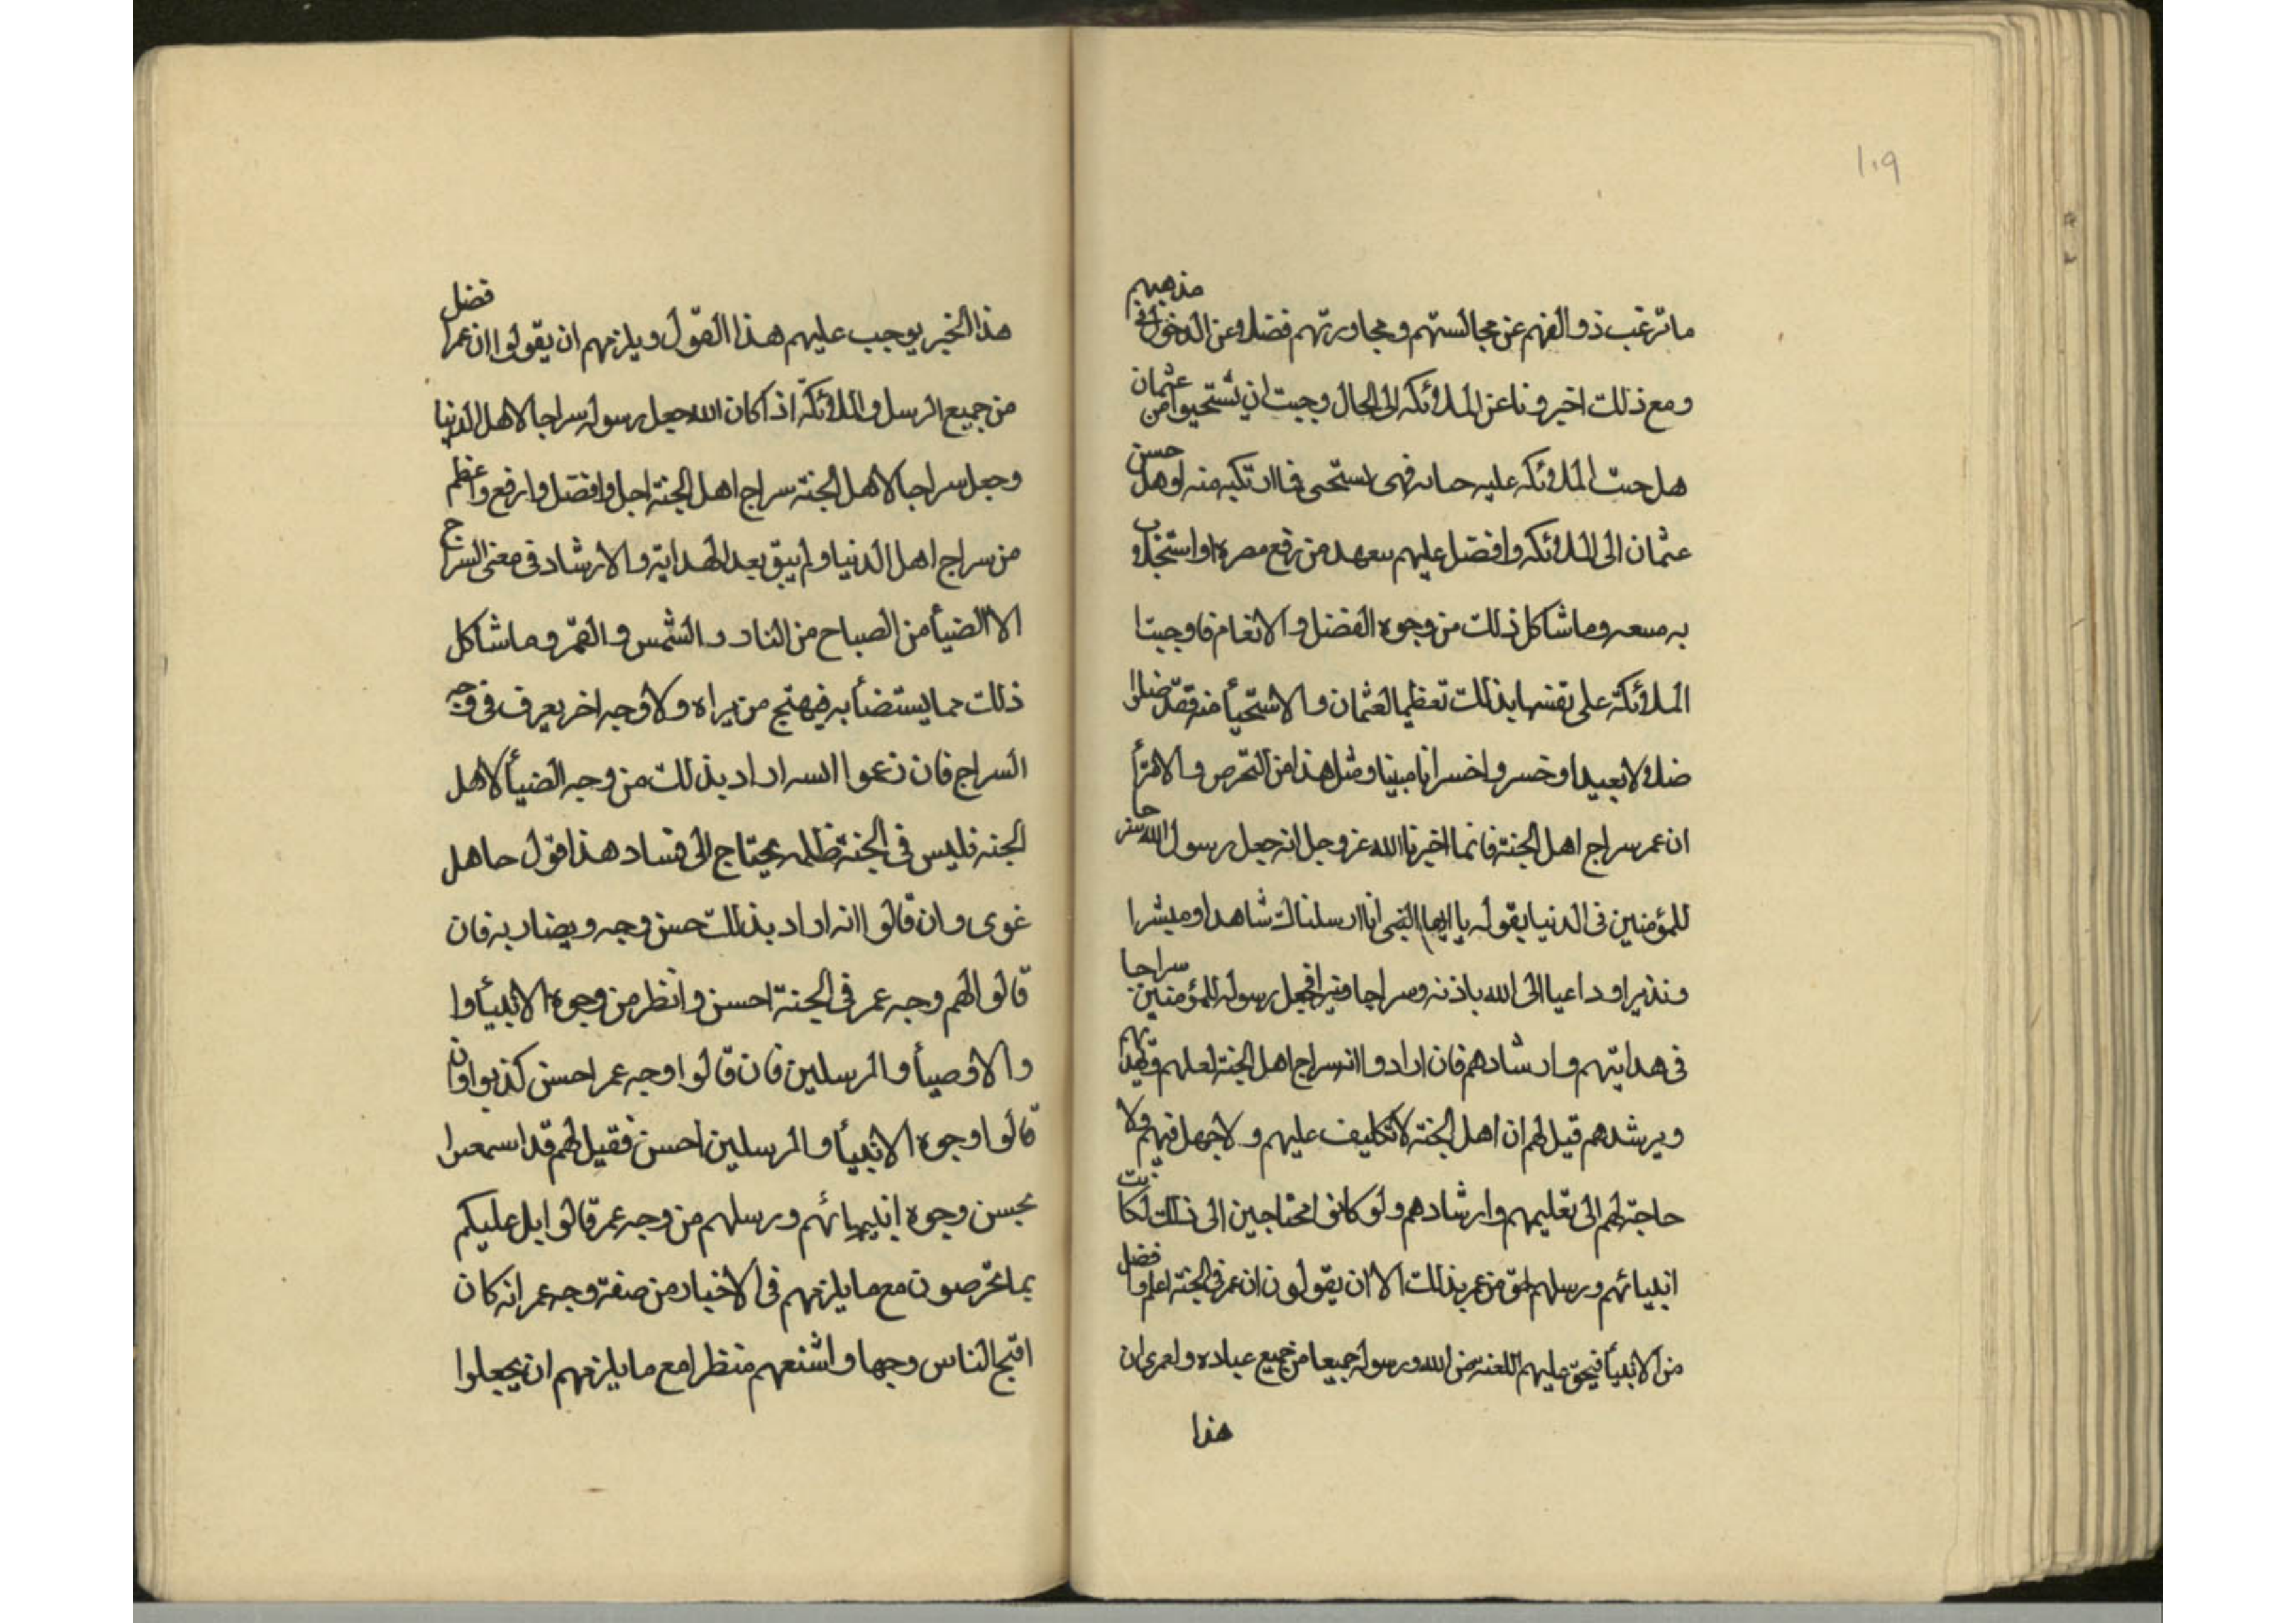 ١٠٩
ما ترغب ذو الفهم عن مجالستهم ومجاورتهم فضلا وعن الدخول في مذهبهم
ومع ذلك اخبرونا عن الملائكه الى الحال وجبت ان تستحيوا من عثمان
هل جنت الملائكه عليه فهى تستحى مما ارتكبه منه او هل حسن
عثمان الى الملائكه وافضل عليهم من رفع او استجلاب
به وما شاكل ذلك من وجوه الفضل والانعام فاوجبتا
الملائكة على نفسها بذلك تعظيما لعثمان والاستحيأ منه فقد ضلوا
ضلالا بعيدا وخسروا خسرانا مبينا ومثل هذا من التخرص والاهتزأ
ان عمر سراج اهل الجنة فانما اخبرنا الله عز وجل انه جعل رسول الله سراجا
للمؤمنين فى الدنيا بقوله يا ايها النبى انا ارسلناك شاهدا ومبشرا
ونذيرا وداعيا الى الله باذنه وسراجا منيرا فجعل رسوله للمؤمنين سراجا
فى هدايتهم وارشادهم فان ارادوا انه سراج اهل الجنة لعلهم وتهديهم
ويرشدهم قيل لهم ان اهل الجنة لا تكليف عليهم ولا جهل فيهم ولا
حاجة لهم الى تعليمهم وارشادهم ولو كانوا محتاجين الى ذلك لكانت
انبيائهم ورسلهم احق من عمر بذلك الا ان يقولون ان عمر فى الجنة اعلم وافضل
من الانبيأ فيحق عليهم اللعنه من الله ورسوله جميعا من جميع عباده ولعمرى ان
هذا
هذا الخبر يوجب عليهم هذا القول ويلزمهم ان يقولوا ان عمر افضل
من جميع الرسل والملائكة اذا كان الله جعل رسوله سراجا لاهل الدنيا
وجعل سراجا لاهل الجنة سراج اهل الجنة اجل وافضل وارفع واعظم
من سراج اهل الدنيا ولم يبق بعد الهداية والارشاد فى معنى السراج
الا الضيأ من الصباح من النار والشمس والقمر وما شاكل
ذلك مما يستضأ به فيهتج من يراه ولا وجه اخر يعرف فى وجه
السراج فان زعموا انه اراد بذلك من وجه الضيأ لاهل
الجنه فليس فى الجنة ظلمه يحتاج الى فساد هذا قول جاهل
غوى وان قالوا انه اراد بذلك حسن وجه ويضاربه فان
قالو الهم وجه عمر فى الجنة احسن وانظر من وجوه الانبيأ وا
والاوصيأ والمرسلين فان قالوا وجه عمر احسن كذبوا وان
قالوا وجوه الانبيأ والمرسلين احسن فقيل لهم قد اسمعنا
بحسن وجوه انبيائهم ورسلهم من وجه عمر قالوا بل عليكم
بما تخرصون مع ما يلزمهم فى الاخبار من صفة وجه عمر انه كان
اقبح الناس وجها واشنعهم منظرا مع ما يلزمهم ان يجعلوا